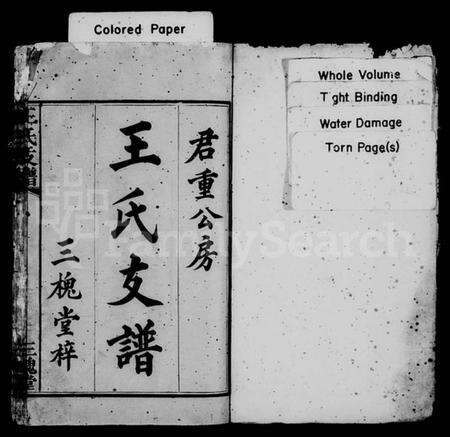 Colored Paper
Whole Volume
Tight Binding
Water Damage
Torn Page(s)
君重公房
王氏支譜
三槐堂梓
王氏支譜
三槐堂
FamilySearch